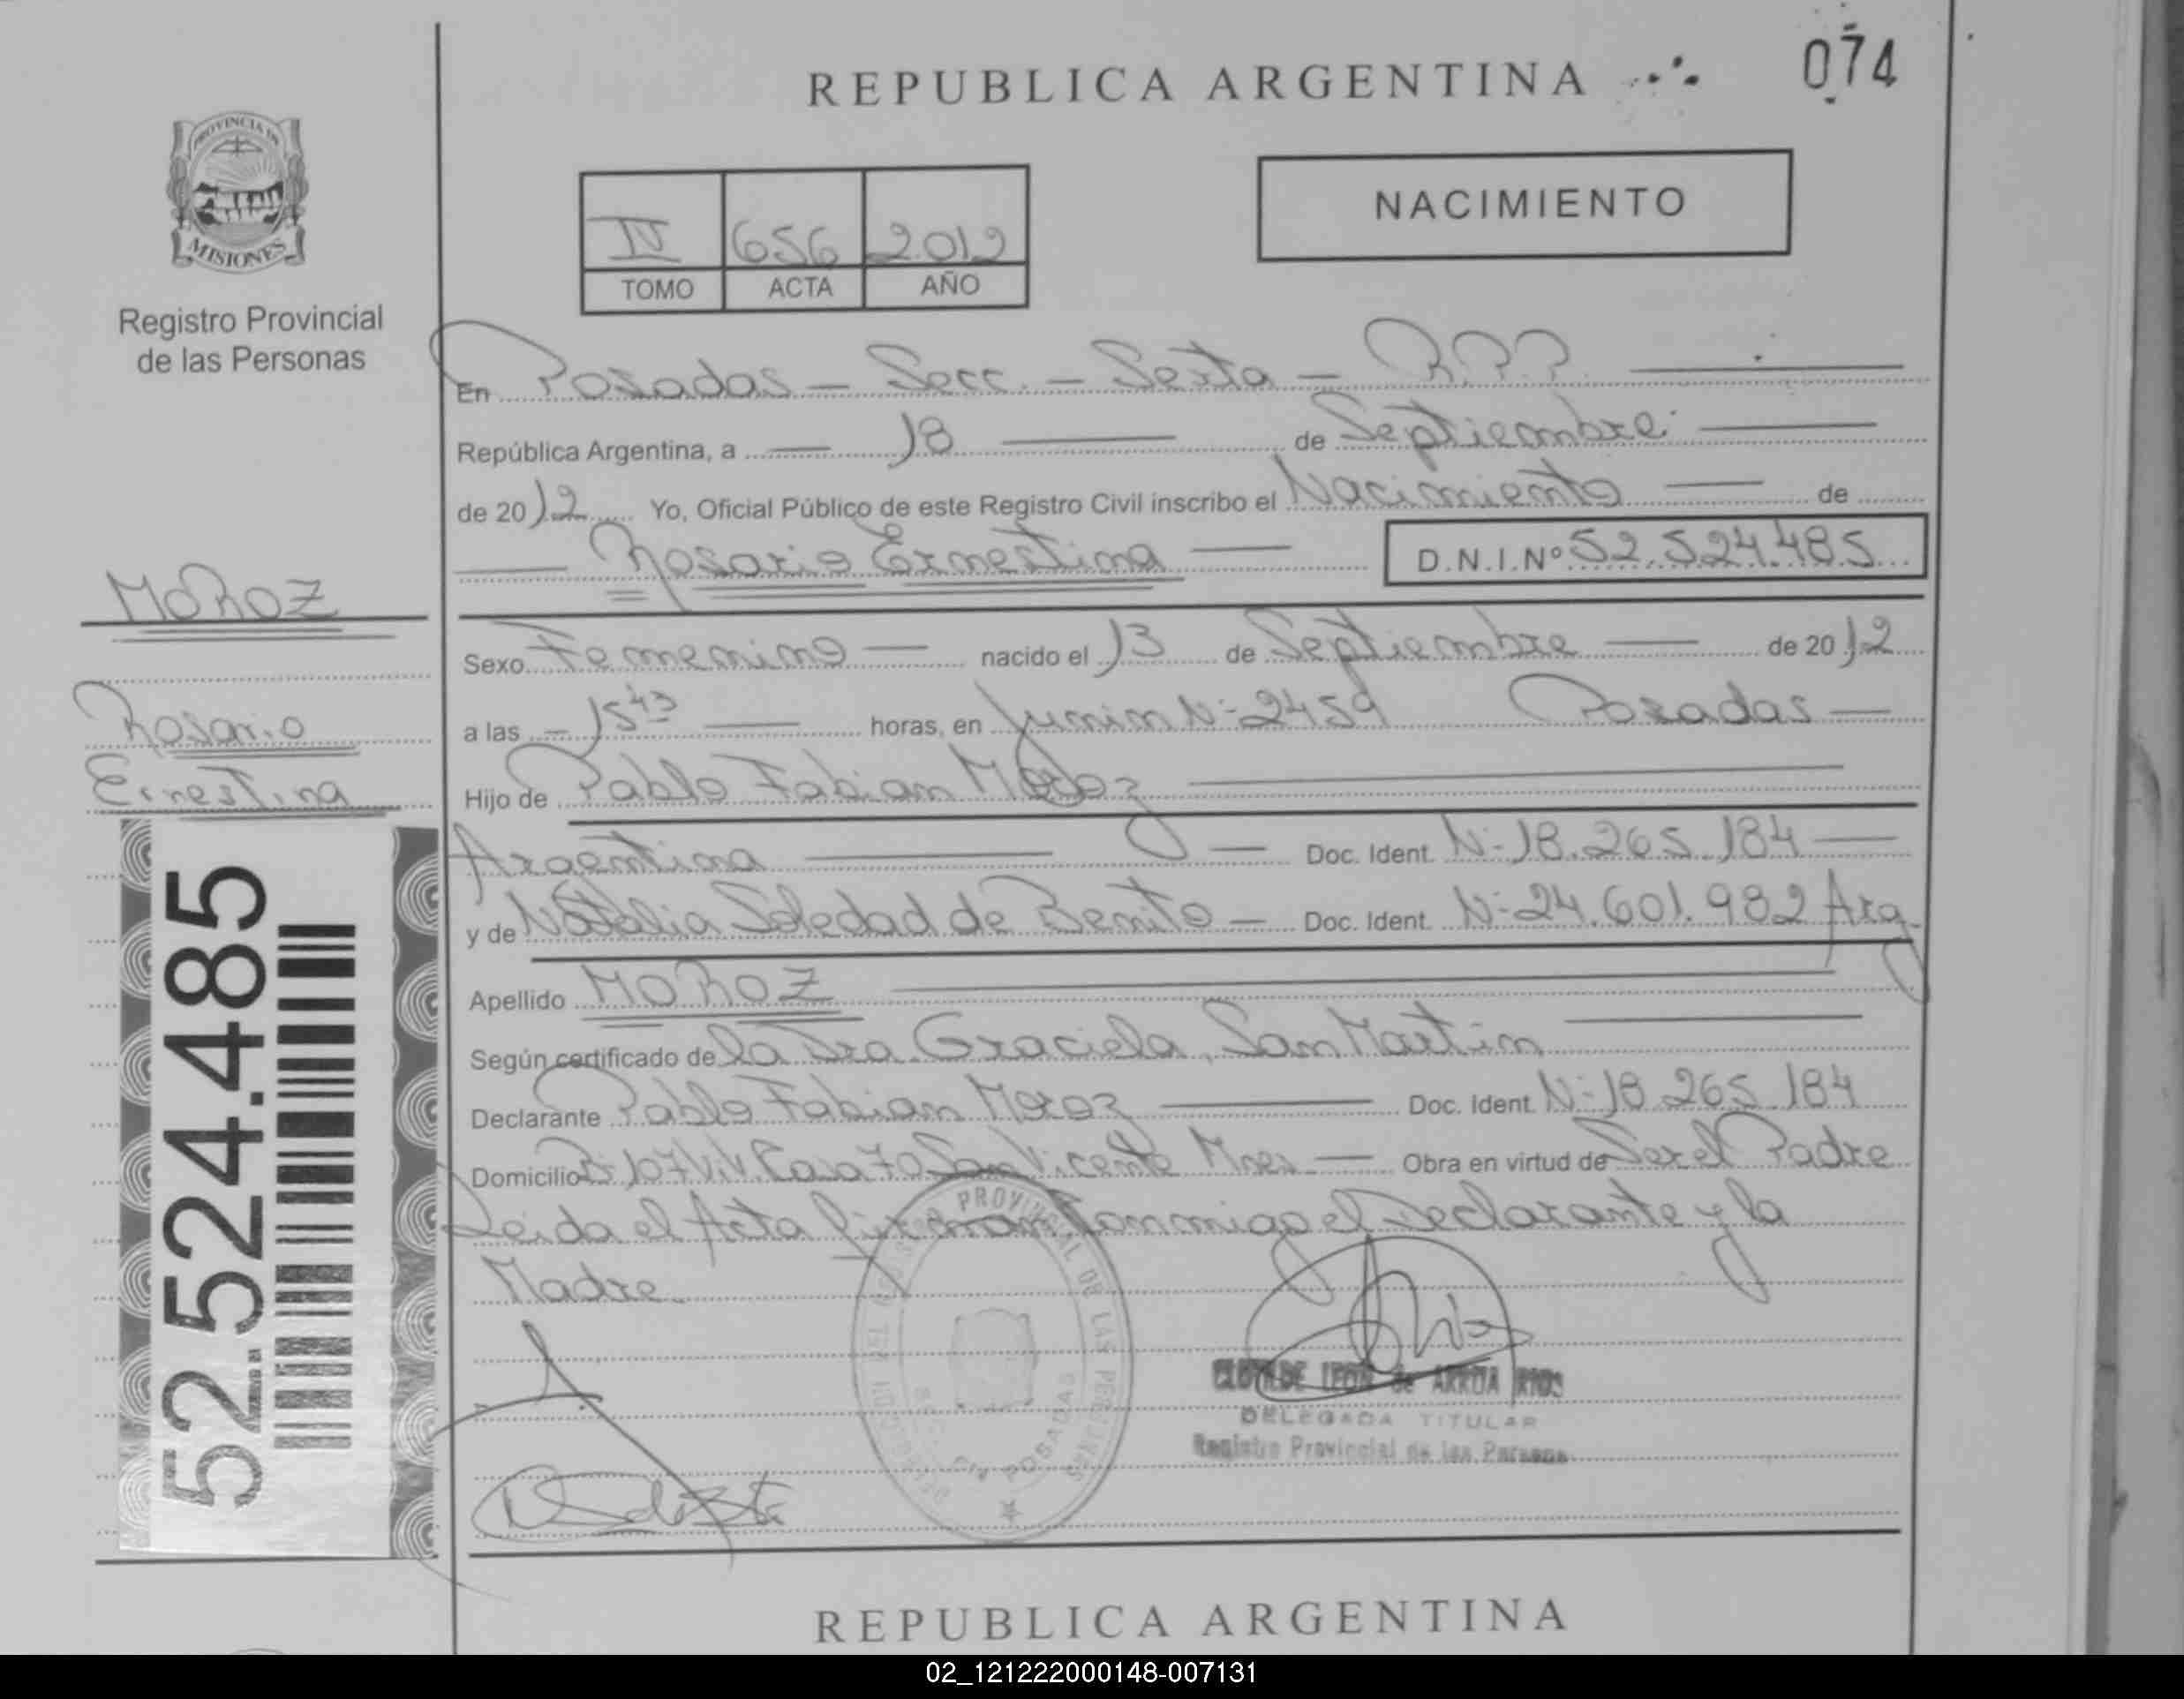 REPUBLICA ARGENTINA
074
PROVINCIA DE
MISIONES
Registro Provincial
de las Personas
IV 656 2012
TOMO ACTA AÑO
NACIMIENTO
En Posadas - Secc. - Sexta - R.P.P.
República Argentina, a 18 de Septiembre
de 2012 Yo, Oficial Público de este Registro Civil inscribo el Nacimiento de
Rosario Ernestina D.N.I.Nº 52.524.485
MOROZ
Rosario
Ernestina
52.524.485
Sexo Femenino nacido el 13 de Septiembre de 2012
a las 15 43 horas, en Junin N: 2459 Posadas
Hijo de Pablo Fabian Moroz
Argentina Doc. Ident. N: 18.265.184
y de Natalia Soledad de Benito Doc. Ident. N: 24.601.982 Arg.
Apellido MOROZ
Según certificado de la Dra. Graciela, San Martin
Declarante Pablo Fabian Moroz Doc. Ident. N: 18.265.184
Domicilio Casa 70 San Vicente Mnes Obra en virtud de Ser el Padre
Leida el Acta firman conmigo el Declarante y la
Madre.
PROVINCIAL DE LAS PERSONAS
POSADAS
CLOTILDE LEON de ARRUA RIOS
DELEGADA TITULAR
Registro Provincial de las Personas
REPUBLICA ARGENTINA
02_121222000148-007131